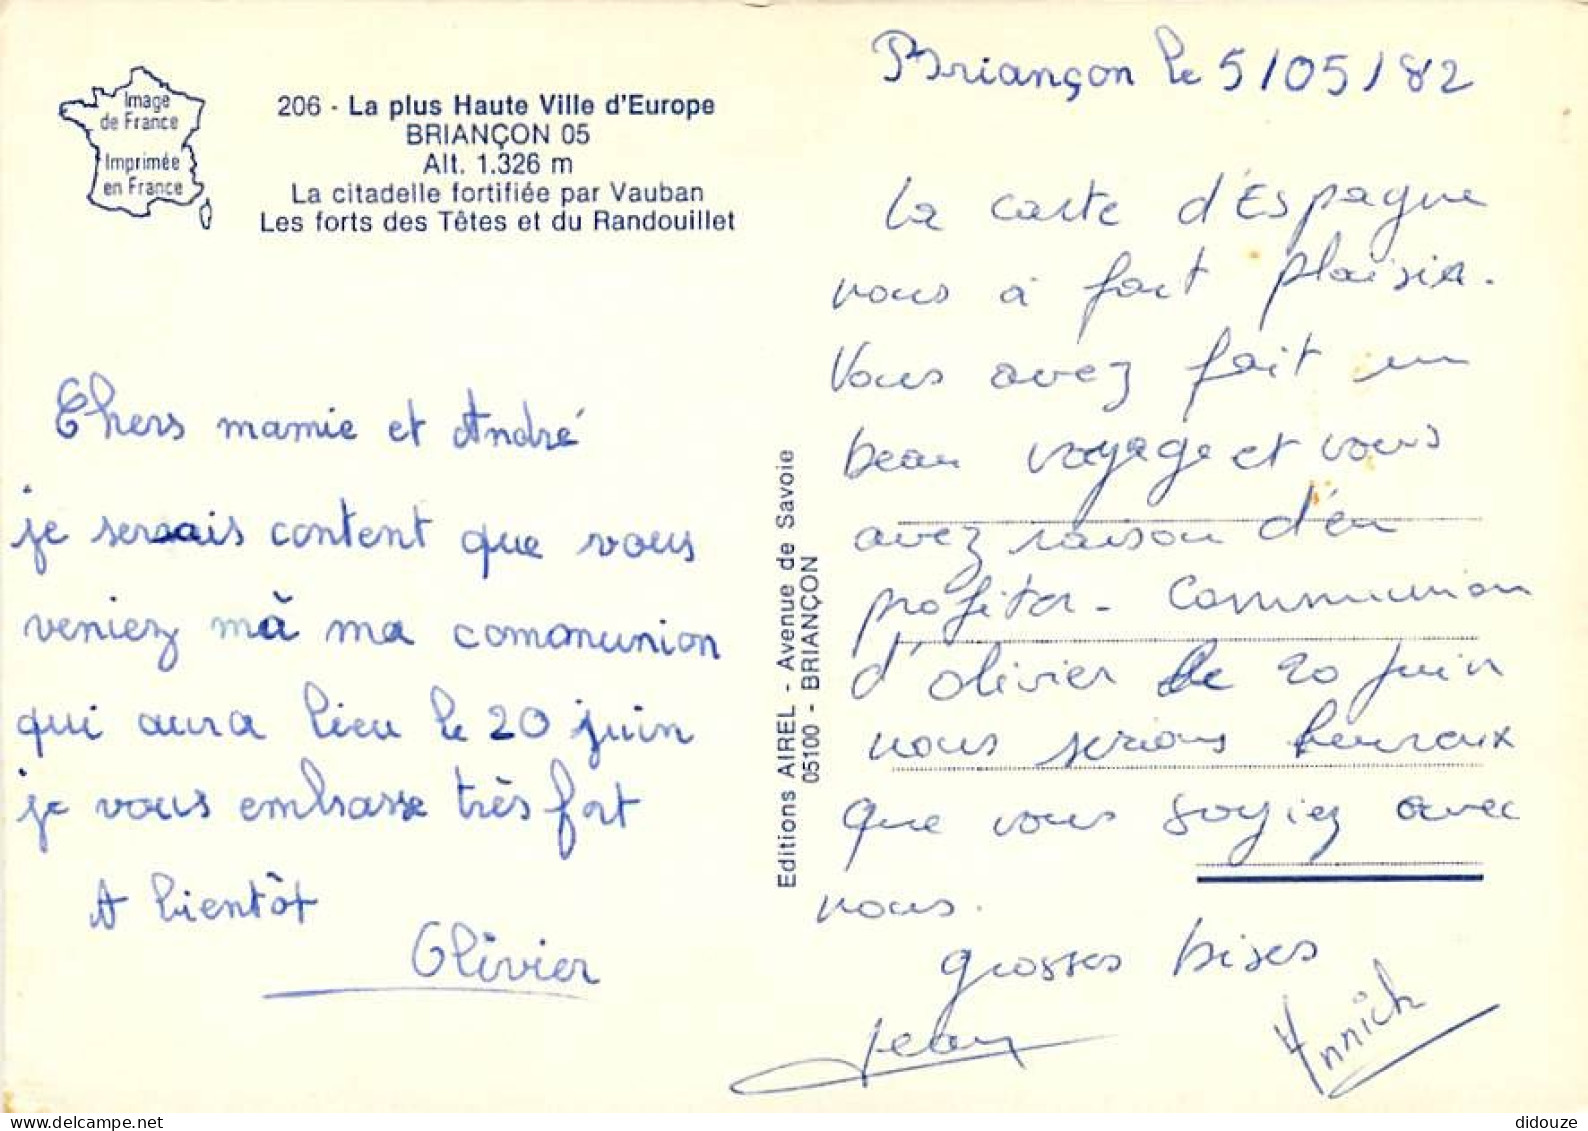 Image
de France
Imprimée
en France
206 - La plus Haute Ville d'Europe
BRIANÇON 05
Alt. 1.326 m
La citadelle fortifiée par Vauban
Les forts des Têtes et du Randouillet
Chers mamie et André
je serais content que vous
veniez mà ma communion
qui aura lieu le 20 juin
je vous embrasse très fort
A bientôt
Olivier
Editions AIREL - Avenue de Savoie
05100 - BRIANÇON
Briançon le 5/05/82
La carte d'Espagne
nous à fait plaisir.
Vous avez fait un
beau voyage et vous
avez raison d'en
profiter - Communion
d'olivier le 20 juin
nous serions heureux
que vous soyiez avec
nous.
grosses bises
Jean
Annick
didouze